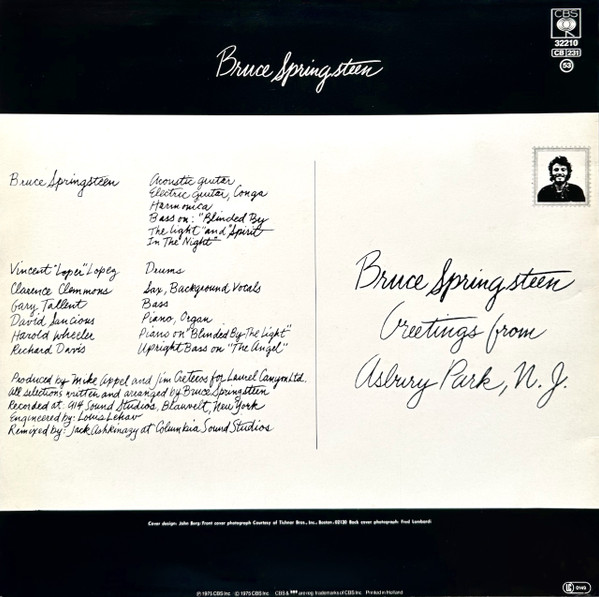 CBS
32210
CB 231
53
Bruce Springsteen
Bruce Springsteen Acoustic guitar,
Electric guitar, Conga
Harmonica
Bass on: "Blinded By
The Light" and "Spirit
In The Night"
Vincent "Loper" Lopez Drums
Clarence Clemmons Sax, Background Vocals
Gary Tallent Bass
David Sancious Piano, Organ
Harold Wheeler Piano on "Blinded By The Light"
Richard Davis Upright Bass on "The Angel"
Produced by Mike Appel and Jim Cretecos for Laurel Canyon Ltd.
All selections written and arranged by Bruce Springsteen
Recorded at: 914 Sound Studios, Blauvelt, New York
Engineered by: Louis Lahav
Remixed by: Jack Ashkinazy at Columbia Sound Studios
Bruce Springsteen
Greetings from
Asbury Park, N.J.
Cover design: John Berg Front cover photograph Courtesy of Tichnor Bros., Inc., Boston: 02130 Back cover photograph: Fred Lombardi
℗ 1975 CBS Inc © 1975 CBS Inc CBS & are reg. trademarks of CBS Inc Printed in Holland
0149